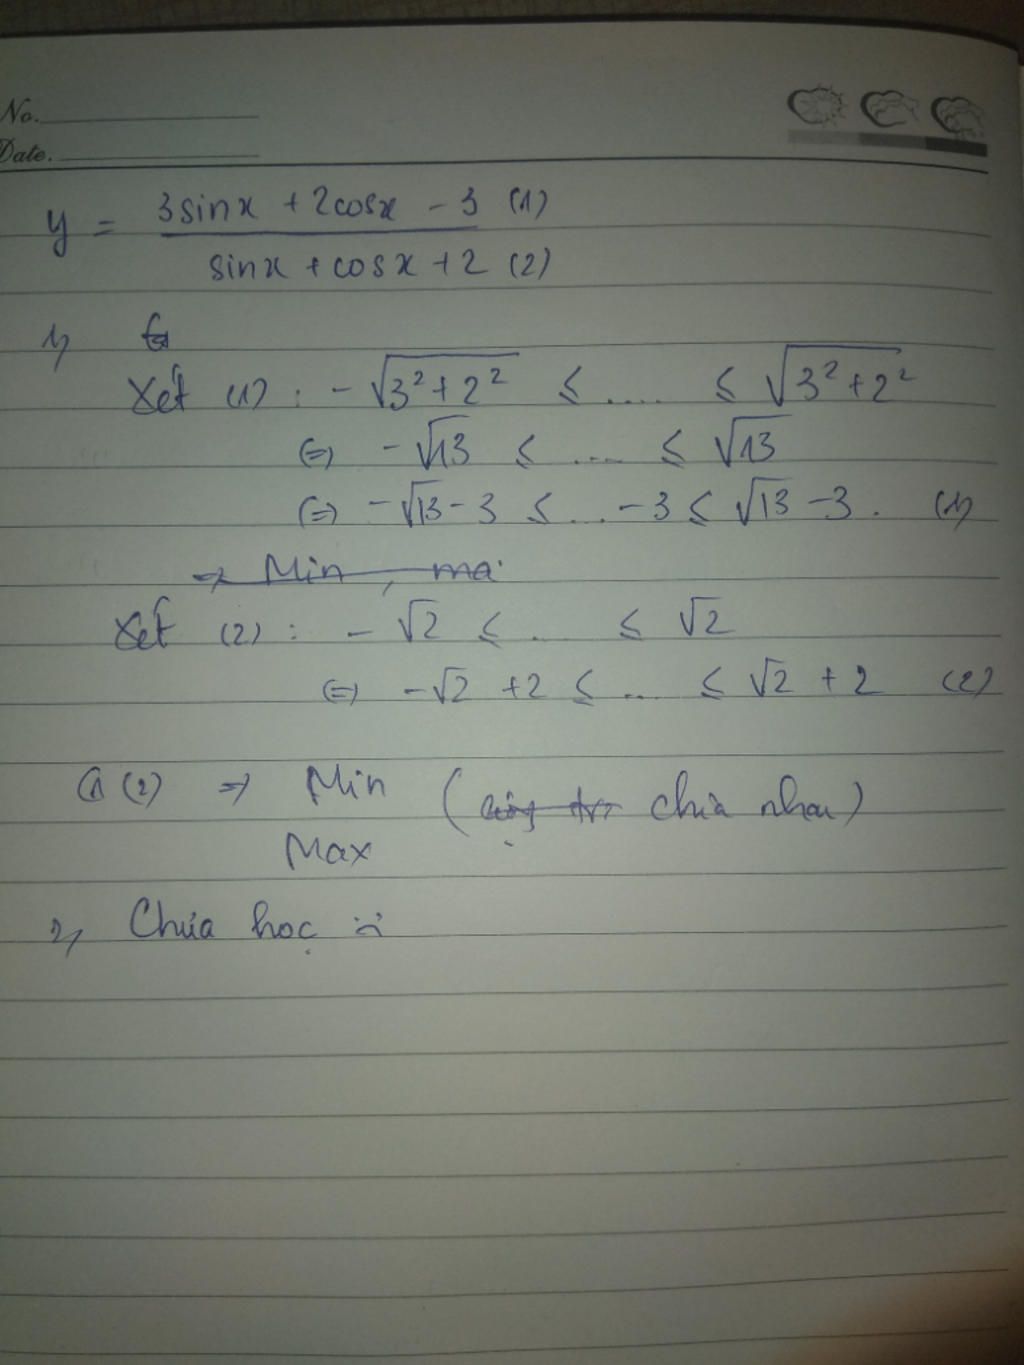 No.
Date.
y = 3sinx + 2cosx - 3 (1)
sinx + cosx + 2 (2)
1)
Xét (1) : -√3²+2² ≤ .... ≤ √3²+2²
(=) -√13 ≤ .... ≤ √13
(=) -√13 - 3 ≤ ... - 3 ≤ √13 - 3 . (1)
=> Min , ma
Xét (2) : - √2 ≤ ... ≤ √2
(=) -√2 + 2 ≤ ... ≤ √2 + 2 (2)
(1) (2) => Min ( chia nhau )
Max
2, Chưa học :i